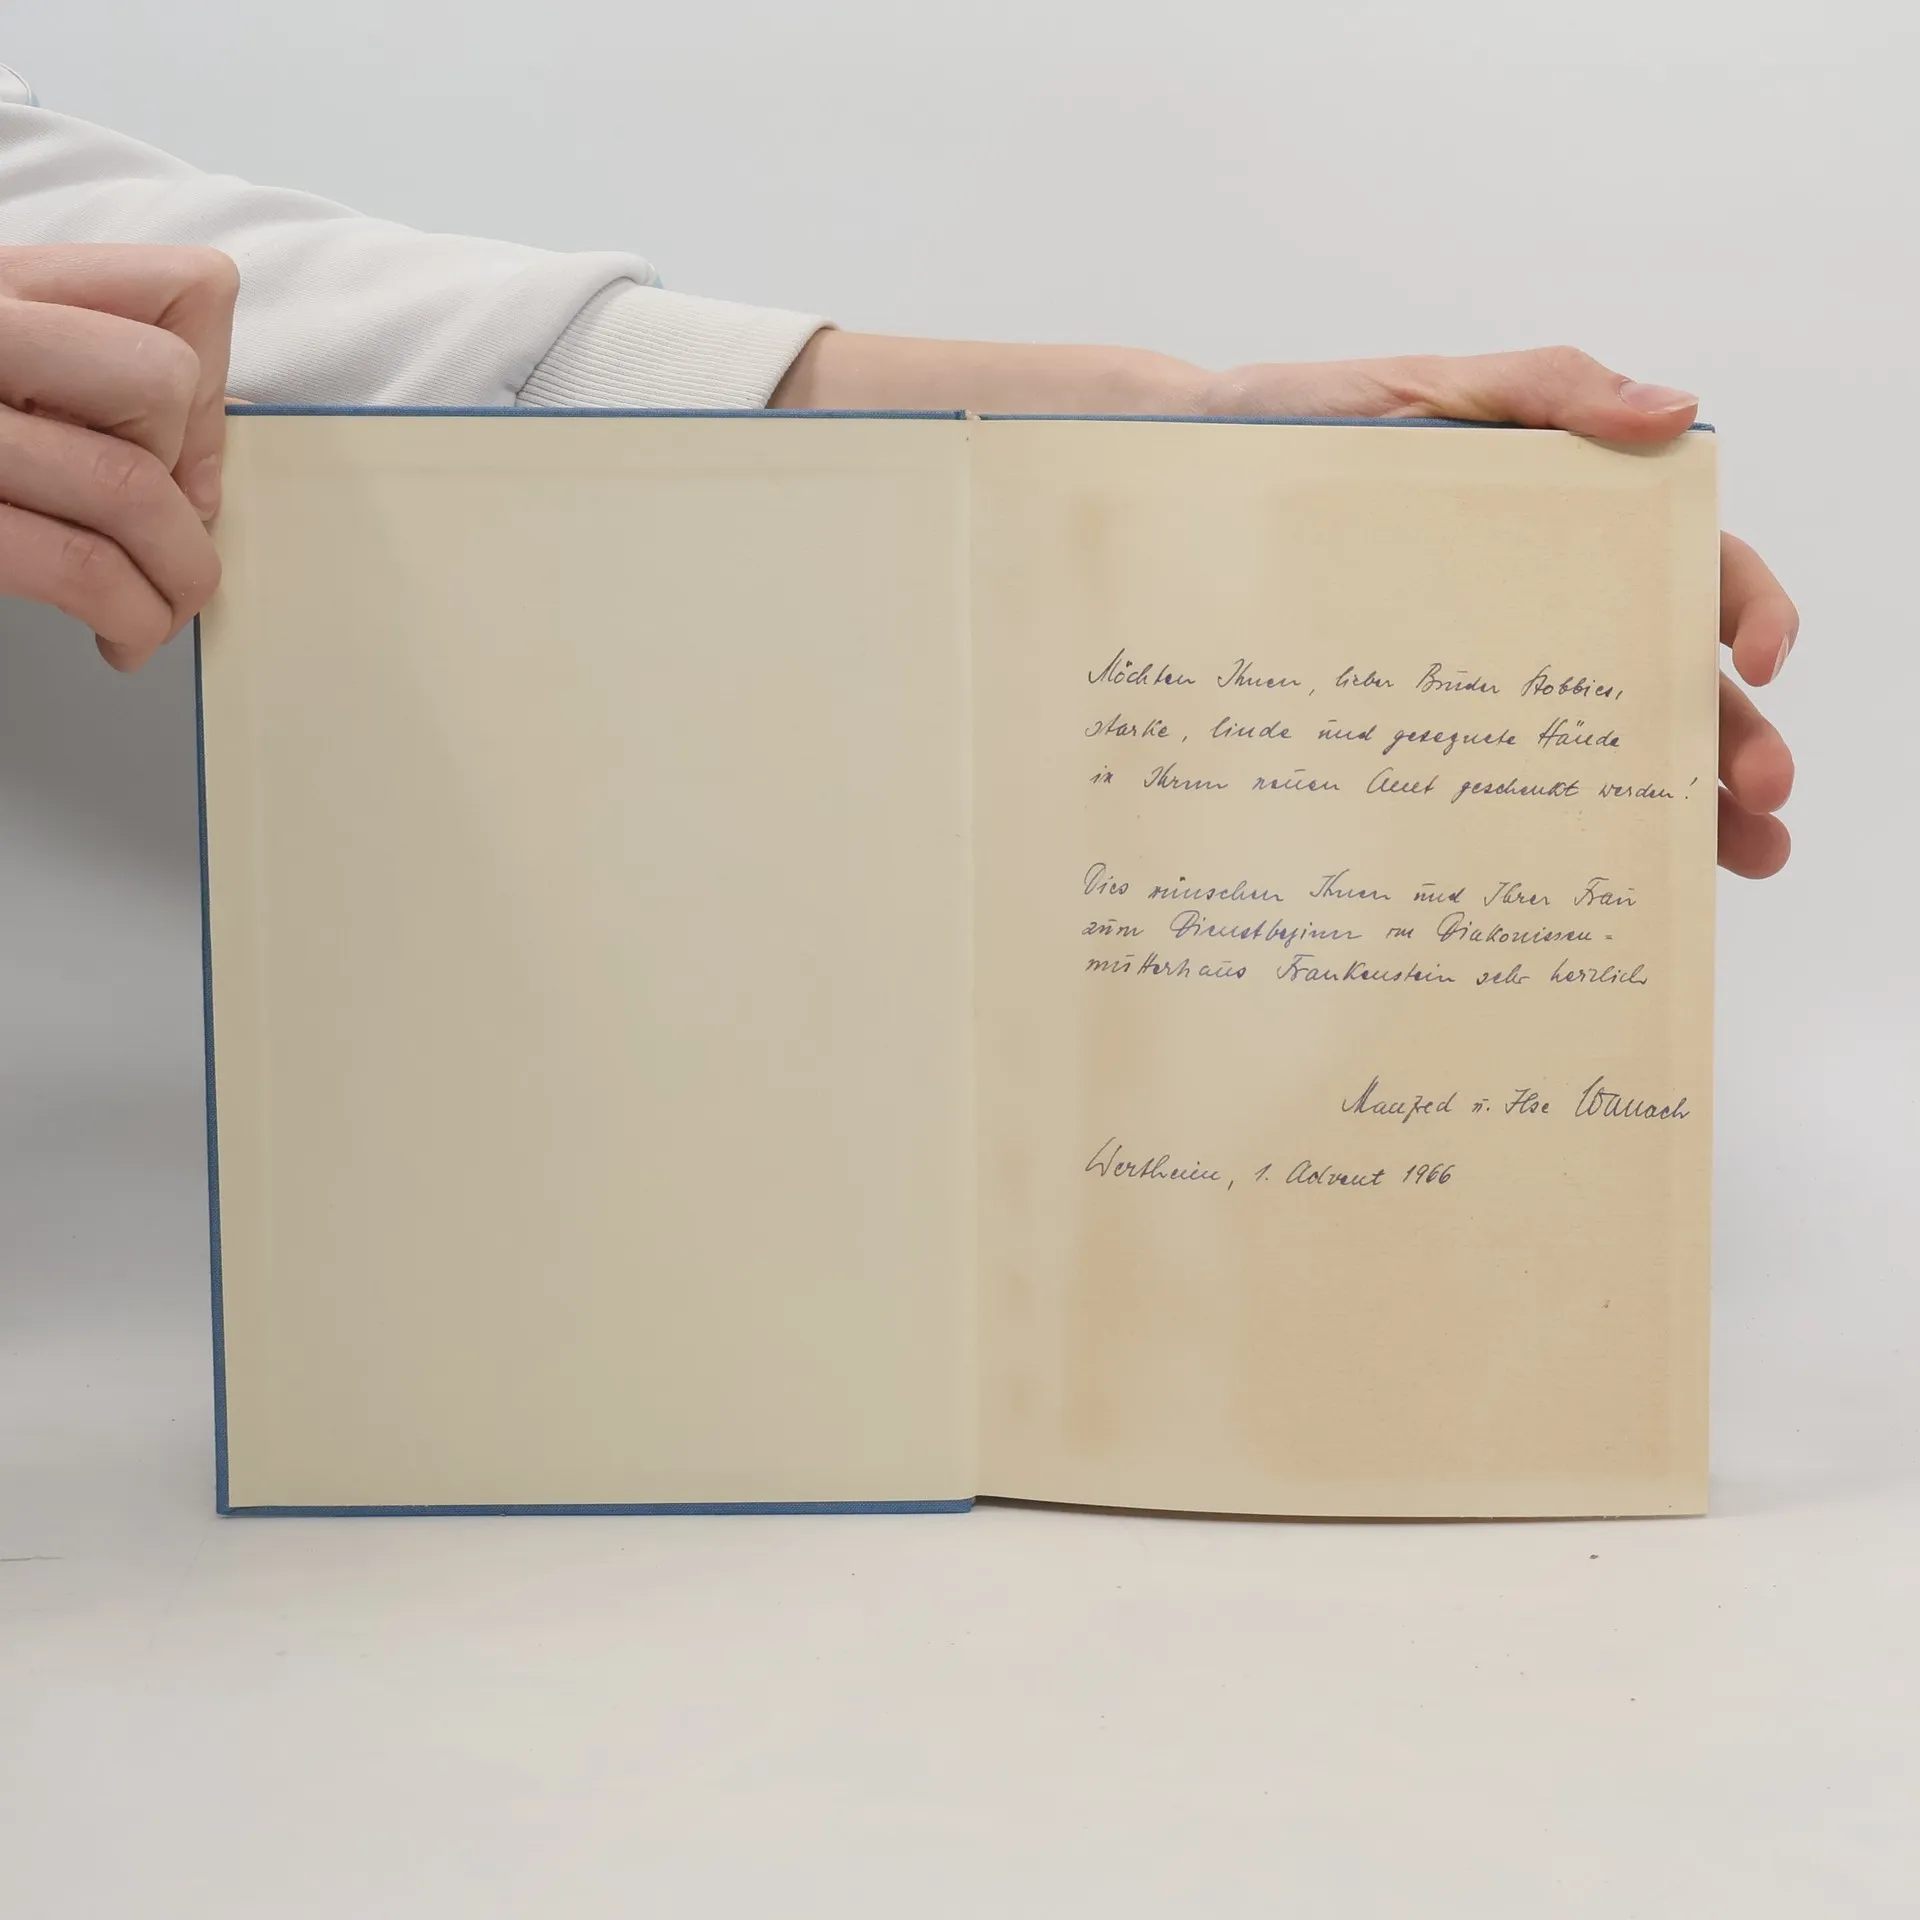 Möchten Ihnen, lieber Bruder Hobbies,
starke, linde und gesegnete Hände
in Ihrem neuen Amt geschenkt werden!
Dies wünschen Ihnen und Ihrer Frau
zum Dienstbeginn im Diakonissen=
mutterhaus Frankenstein sehr herzlich
Manfred u. Ilse
Wertheim, 1. Advent 1966